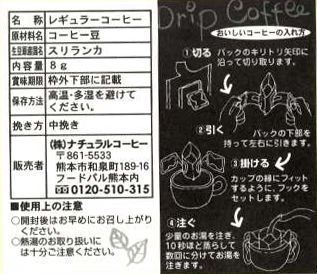 名称 レギュラーコーヒー
原材料名 コーヒー豆
生豆原産国名 スリランカ
内容量 8g
賞味期限 枠外下部に記載
保存方法 高温・多湿を避けて
ください。
挽き方 中挽き
販売者 (株)ナチュラルコーヒー
〒861-5533
熊本市和泉町189-16
フードパル熊本内
0120-510-315
■使用上の注意
○開封後はお早めにお召し上がり
ください。
○熱湯のお取り扱いに
は十分ご注意ください。
Drip Coffee
おいしいコーヒーの入れ方
1 切る
パックのキリトリ矢印に
沿って切り取ります。
2 引く
パックの下部を
持って左右に引きます。
3 掛ける
カップの縁にフィット
するように、フックを
セットします。
4 注ぐ
少量のお湯を注ぎ、
10秒ほど蒸らして
数回に分けてお湯を
注ぎます。